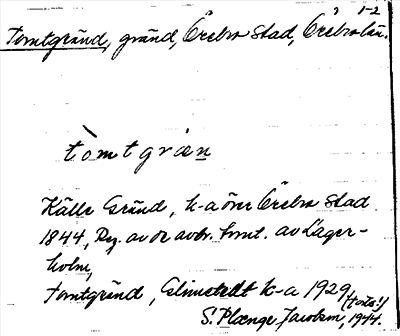 1-2
Tomtgränd, gränd, Örebro stad, Örebro län.
tòmtgræn
Källe Gränd, k-a över Örebro stad
1844, Reg. av o. avbr. Lmt. av Lager-
holm,
Tomtgränd, Glimstedt k-a 1929, (forts!)
S. Plænge Jacobson 1944.